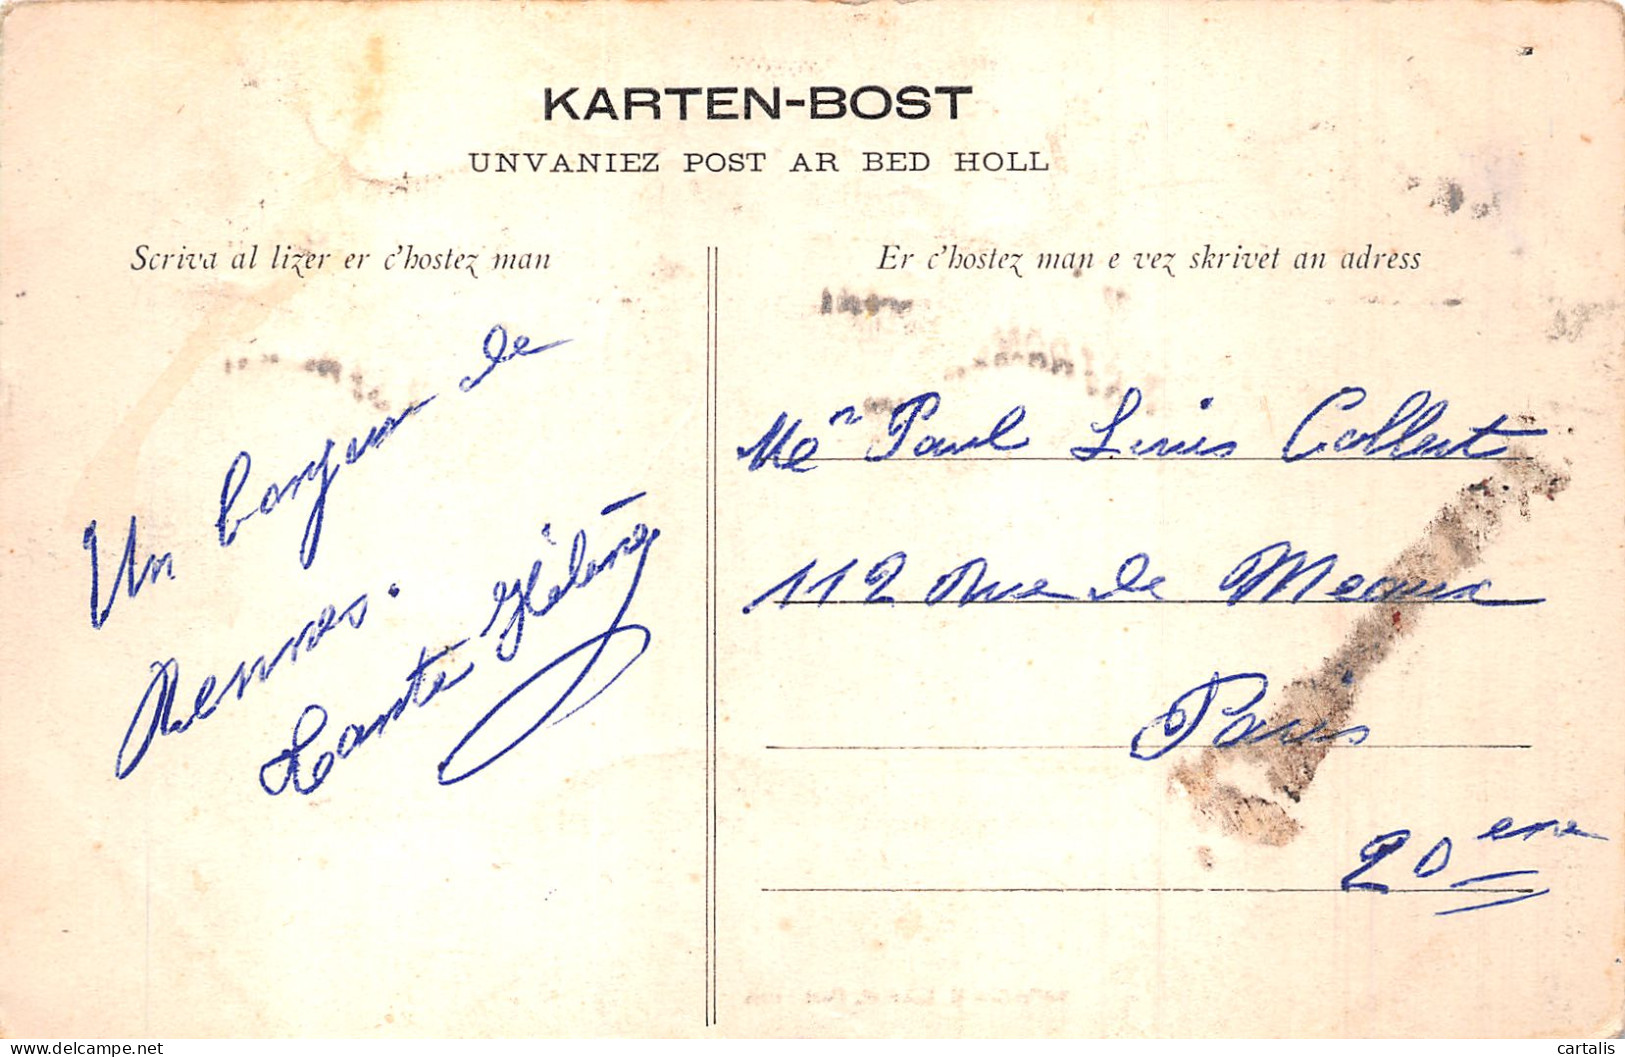 KARTEN-BOST
UNVANIEZ POST AR BED HOLL
Scriva al lizer er c'hostez man
Un bonjour de
Rennes.
Tante Hélène
Er c'hostez man e vez skrivet an adress
Paul Louis Collert
112 Rue de Meaux
Paris
20ème
delcampe.net
cartalis